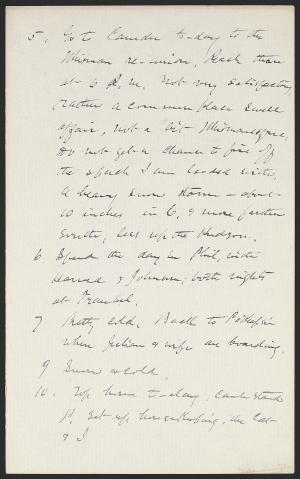 5. Go to Camden to-day to the
Whitman re-union, Reach there
at 5 P.M. Not very satisfactory,
rather a common place swell
affair, not a bit Whitmanesque;
do not get a chance to fire off
the speech I am loaded with,
A heavy snow storm - about
10 inches in C, & more farther
south, less up the Hudson.
6 Spend the day in Phil, with
Harned & Johnson; both nights
at Traubel.
7 Pretty cold. Back to P'Kepsie
where Julian & wife are boarding.
9 Snow & cold.
10. Up home to-day, can't stand
P. set up housekeeping, the Cat
& I